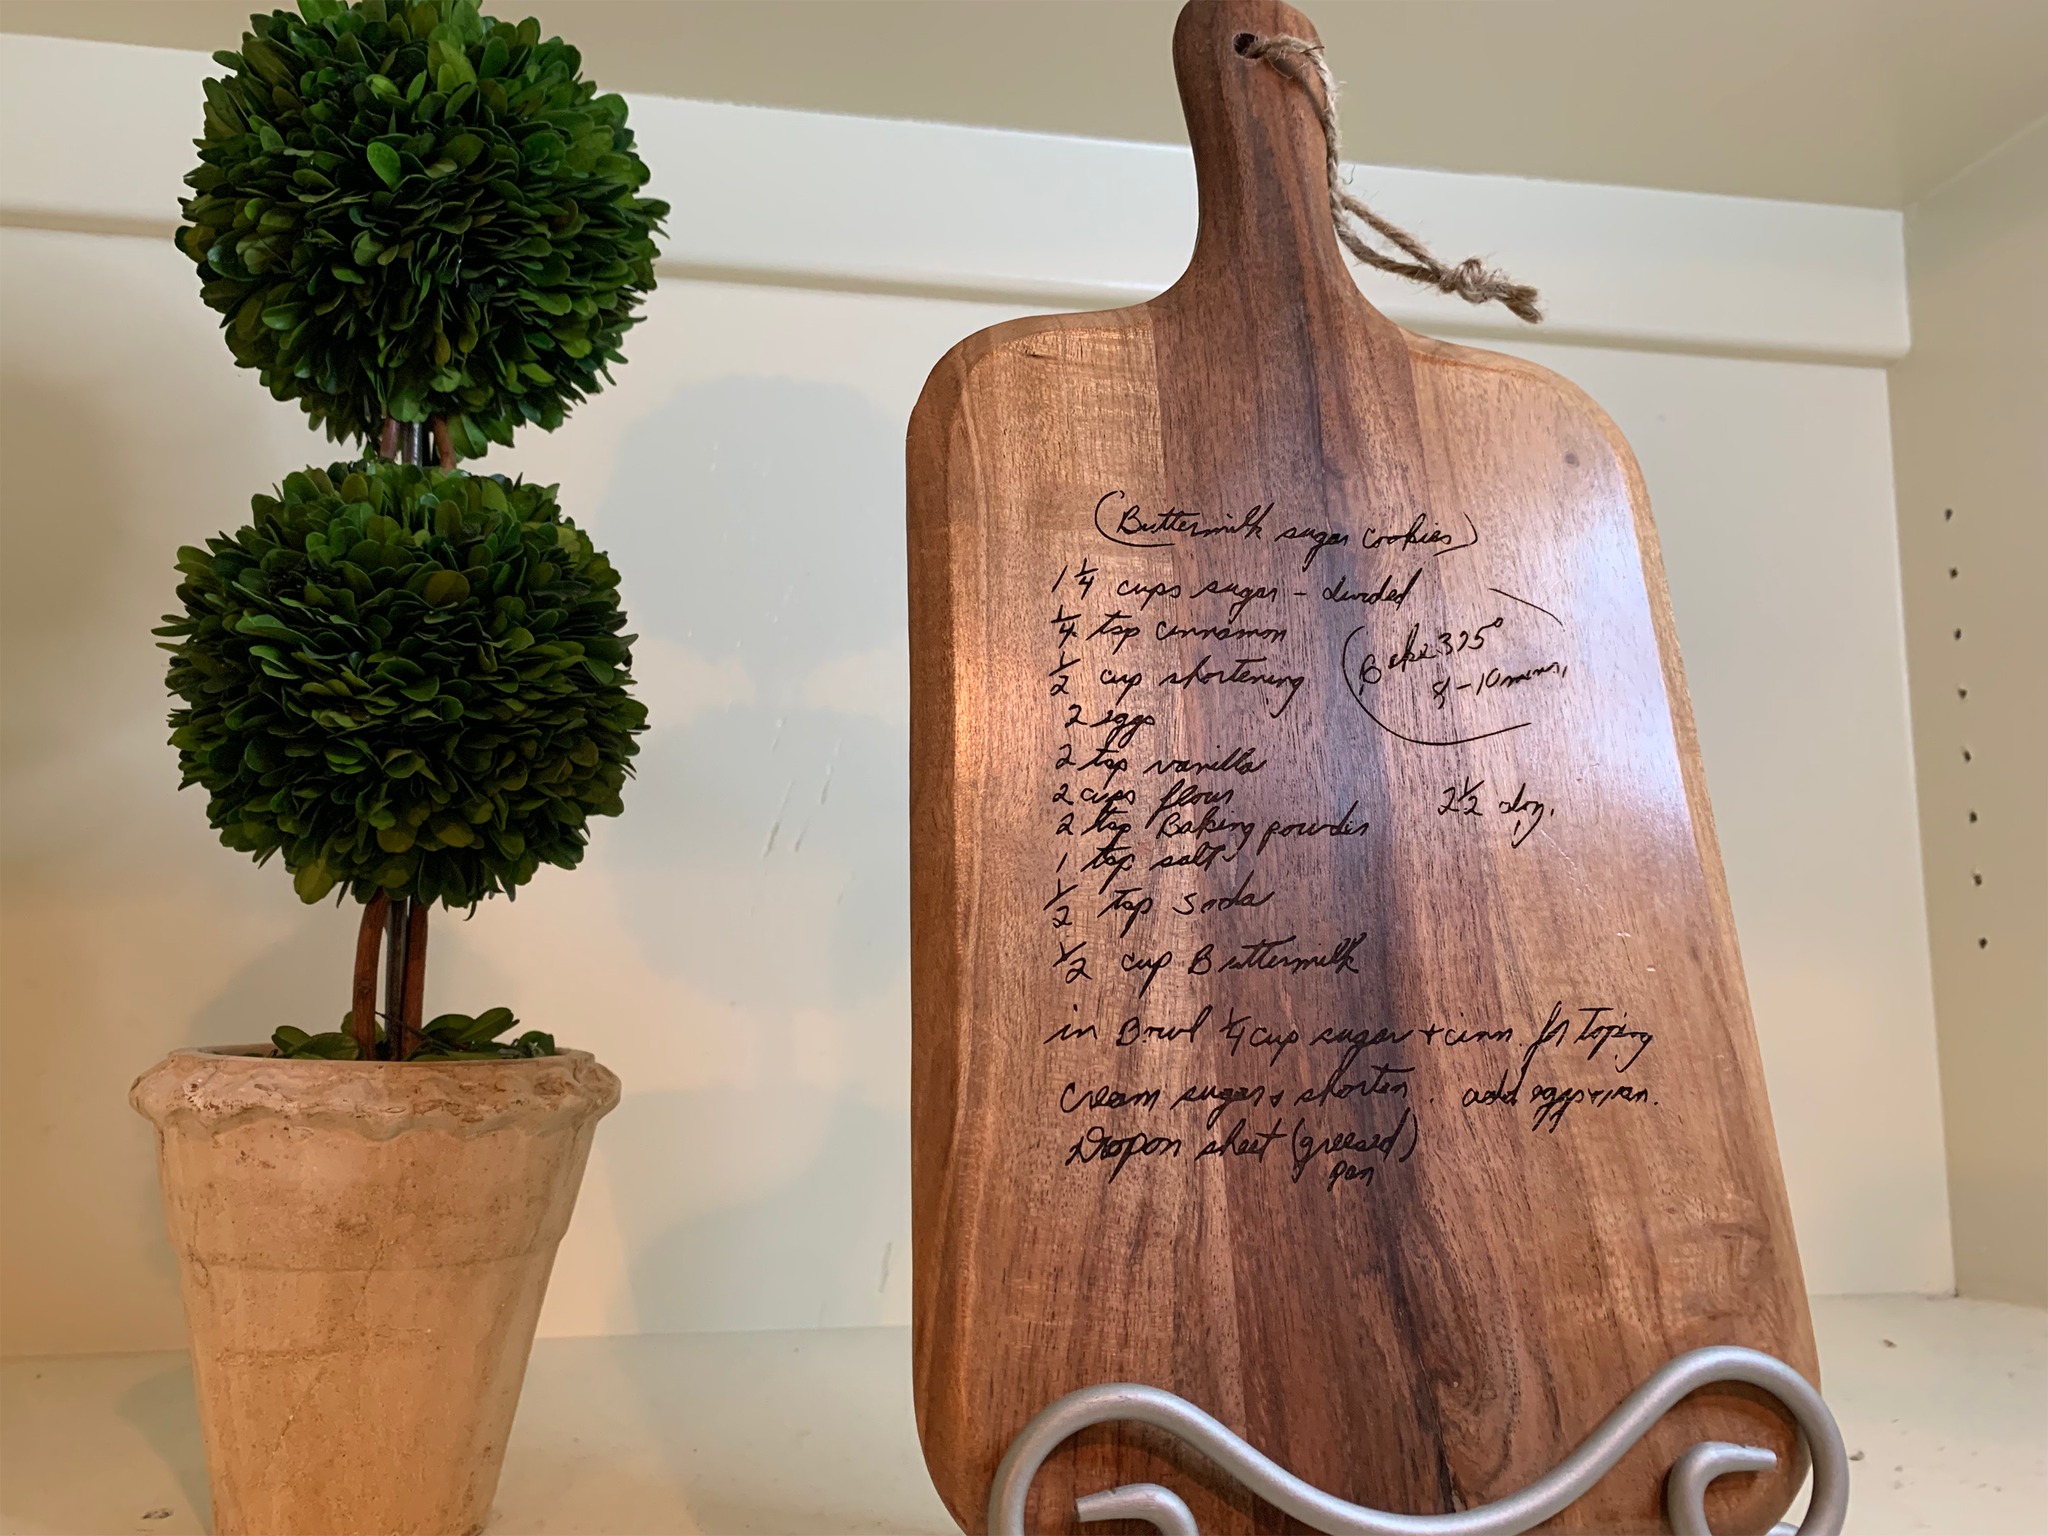 (Buttermilk sugar cookies)
1 1/4 cups sugar - divided
1/4 tsp cinnamon
1/2 cup shortening
Bake 375°
8-10 mins,
2 eggs
2 tsp vanilla
2 cups flour
2 1/2 doz.
2 tsp Baking powder
1 tsp salt
1/2 tsp soda
1/2 cup Buttermilk
in Bowl 1/4 cup sugar + cinn. for toping
Cream sugar & shorten. add eggs + van.
Drop on sheet (greased)
pan